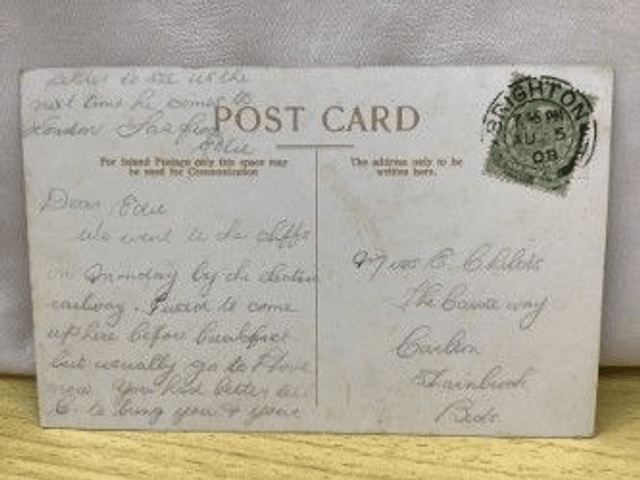 to see us the
next time he comes to
London
Edie
POST CARD
For Inland Postage only this space may
be used for Communication
The address only to be
written here.
BRIGHTON
7.45 PM
AU 5
08
Dear Edie
We went to the cliffs
on Monday by the electric
railway. I used to come
up here before breakfast
but usually go to Hove
now. You had better
C. to bring you & your
Miss E.
The Causeway
Carlton
Beds